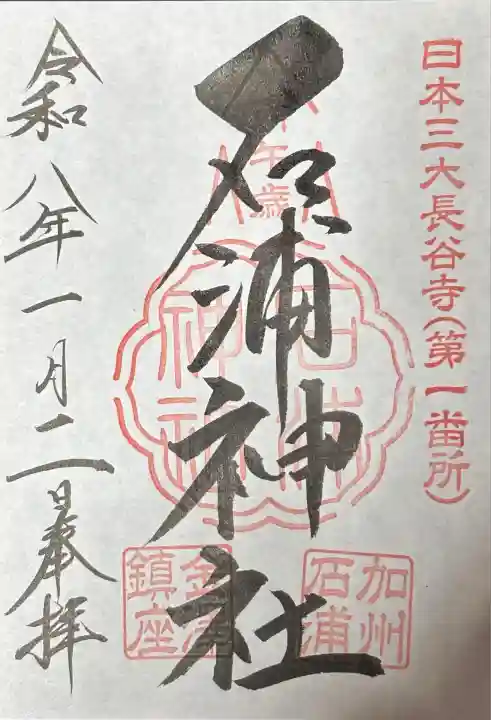 日本三大長谷寺(第一番所)
午歳
石浦神社
石浦
神社
加州
石浦
金澤
鎮座
令和八年一月二日奉拝